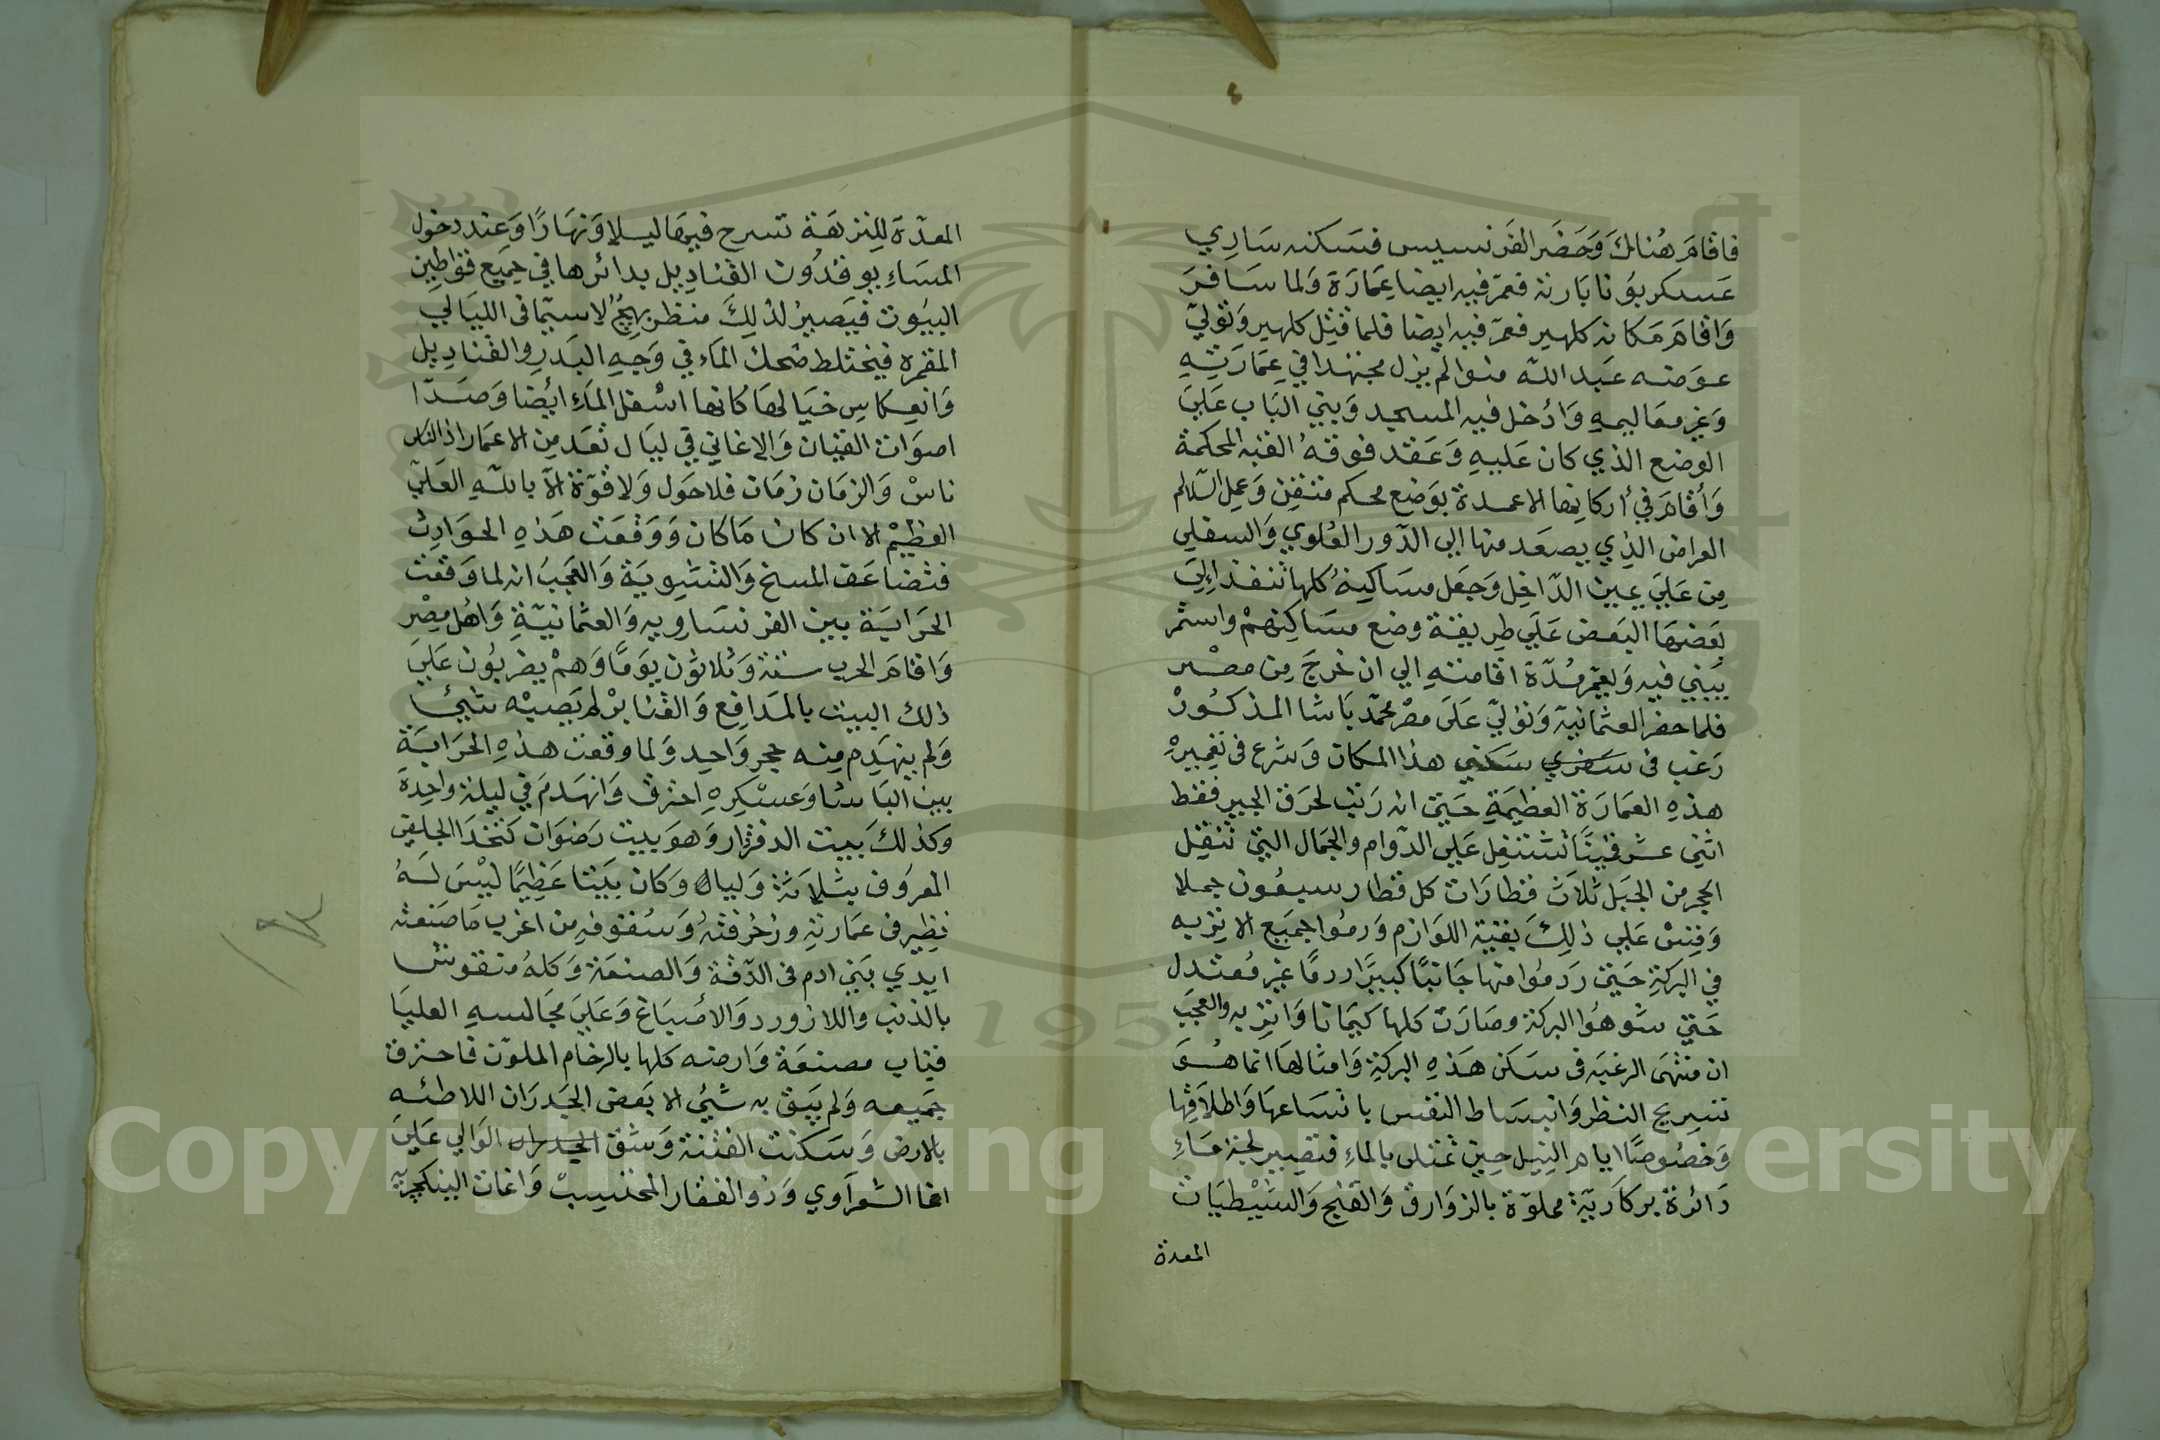 فاقام هُنالكَ وَحَضَر الفَرنسيس فسَكنه سَارِي
عَسكر بوُنابَارته فعمّر فيه ايضا عِمَارَة وَلما سَافرَ
وَاقامَ مَكانه كلهبر فعمّر فيه ايضا فلما قتِل كلهبر وَتولّي
عوَضه عَبد اللّه منوا لم يزل مجتهدا في عِمَارَتِهِ
وَغير معَاليمهِ وَادُخل فيه المسجد وَبني البَاب عَليَ
الوضع الذي كان عَليهِ وَعَقد فوقهُ القبه المحكمة
وَأقامَ في أركانِها الاعمدة بوَضع محكم متقِن وَعمِل السّلالم
العراض الذِي يصعَد منها إلي الدّور العُلوي وَالسفلي
مِن عَليَ يمين الدّاخِل وَجَعَل مسَاكِنهُ كلها تنفذ اِليَ
بَعضهَا البَعض عَلَي طرِيقة وضع مسَاكِنِهمْ واستمر
يَبني فيه وَيعمّر مُدّة اقامتهِ الي ان خرجَ مِن مصْر
فلما حضر العثمَانيّة وَتولّي عَلَى مصْر محمّد بَاشا المذكوُر
رَغب في سَفري سَكني هذا المكان وَشرع في تعميرِهِ
هذهِ العمَارَة العظيمَةِ حَتيَ انه رَتب لحرَق الجير فقط
اثني عشر قمينًا تشتغِل عَلي الدّوام والجمَال التي تنقِل
الحجر من الجَبَل ثلاَث قطارَات كل قطار سبعُون جملا
وَقِسْ عَلي ذلِكَ بقية اللوَازم وَرموُا جميَع الاتربه
في البركةِ حَتيَ رَدموُا منها جَانبًا كبيرًا ردمًا غير مُعتدل
حَتيَ شوهوُا البركة وَصَارَت كلها كيمَانا وَاتربه والعجَب
ان منتهَى الرغبَه في سَكن هَذهِ البركةِ وَامثالهَا انما هُوَ
تسرِيح النظر وَانبسَاط النفس باتسَاعهَا وَاطلاَقِها
وَخصُوصًا ايام النِيل حِين تمتلى بالماءِ فتصِير لجّة مَاءِ
دَائرة بركاريّة مملوّة بالزوَارق وَالقنج وَالشيْطيَات
المعدة
المعدّة للِنزهَة تسرح فيهَا ليلا وَنهَارًا وَعِند دخول
المسَاءِ يوقدُون القنادِيل بدائرها في جميَع قوَاطِين
البيُوت فيَصيرُ لذلِكَ منظر بهِيجٌ لاسيّما في الليَاليَ
المقمره فيختلط ضحك الماَء في وَجهِ البَدرِ والقنادِيل
وَانعِكاسِ خيَالهَا كانها اسْفل الماَءِ ايْضا وَصَدَا
اصوَات القيَان وَالاغاني في ليَال تعَد مِن الاعمَار اذ الناس
ناسْ وَالزمَان زمَان فلاحَول وَلا قوّة الاّ باللّهِ العَليّ
العظيْم الا ان كان مَا كان وَوَقعَت هَذهِ الحوَادِث
فتضاعَف المسخ وَالتشوِيَة وَالعَجَبُ انه لما وَقعَت
الحَرَابَة بين الفرنسَاوِيه وَالعثمَانيّةِ وَاهْل مِصْرِ
وَاقامَ الحرب ستة وَثلاثوُن يوَمًا وَهمْ يضرِبُون عَليَ
ذلك البيت بالمَدَافِع وَالقنابرْ لم يَصبهْ شيئا
وَلم ينهَدِم مِنه حجرِ وَاحِد وَلما وقعت هذهِ الحَرَابَةِ
بين البَاشا وَعسْكرِهِ احترَق وَانهَدمَ في ليلة واحِدة
وكذلكَ بَيت الدفتردار وَهوَ بيت رَضوَان كتخدَا الجلفي
المعروَف بثلاَثة وَليال وَكان بيَتا عَظيِمًا ليْسَ لَهُ
نظِير في عمَارته وزخرفتهُ وَسُقوفهِ من اغرب مَا صَنعته
ايدي بَني ادم في الدّقة وَالصنعَة وَكلهُ منقوش
بالذهب واللازورد وَالاصبَاغ وَعَليَ مجَالسهِ العليَا
قبَاب مصنعَة وَارضه كلها بالرخام الملوّن فاحترق
جَميعه وَلم يبَق به شيئ الا بَعض الجدَرَان اللاطئه
بالارض وَسَكنت الفتنة وَشق الجدران الوَالي عَليَ
اغا الشعرَاوي وَذو الفقار المحتسِبْ وَاغات الينكجريّه